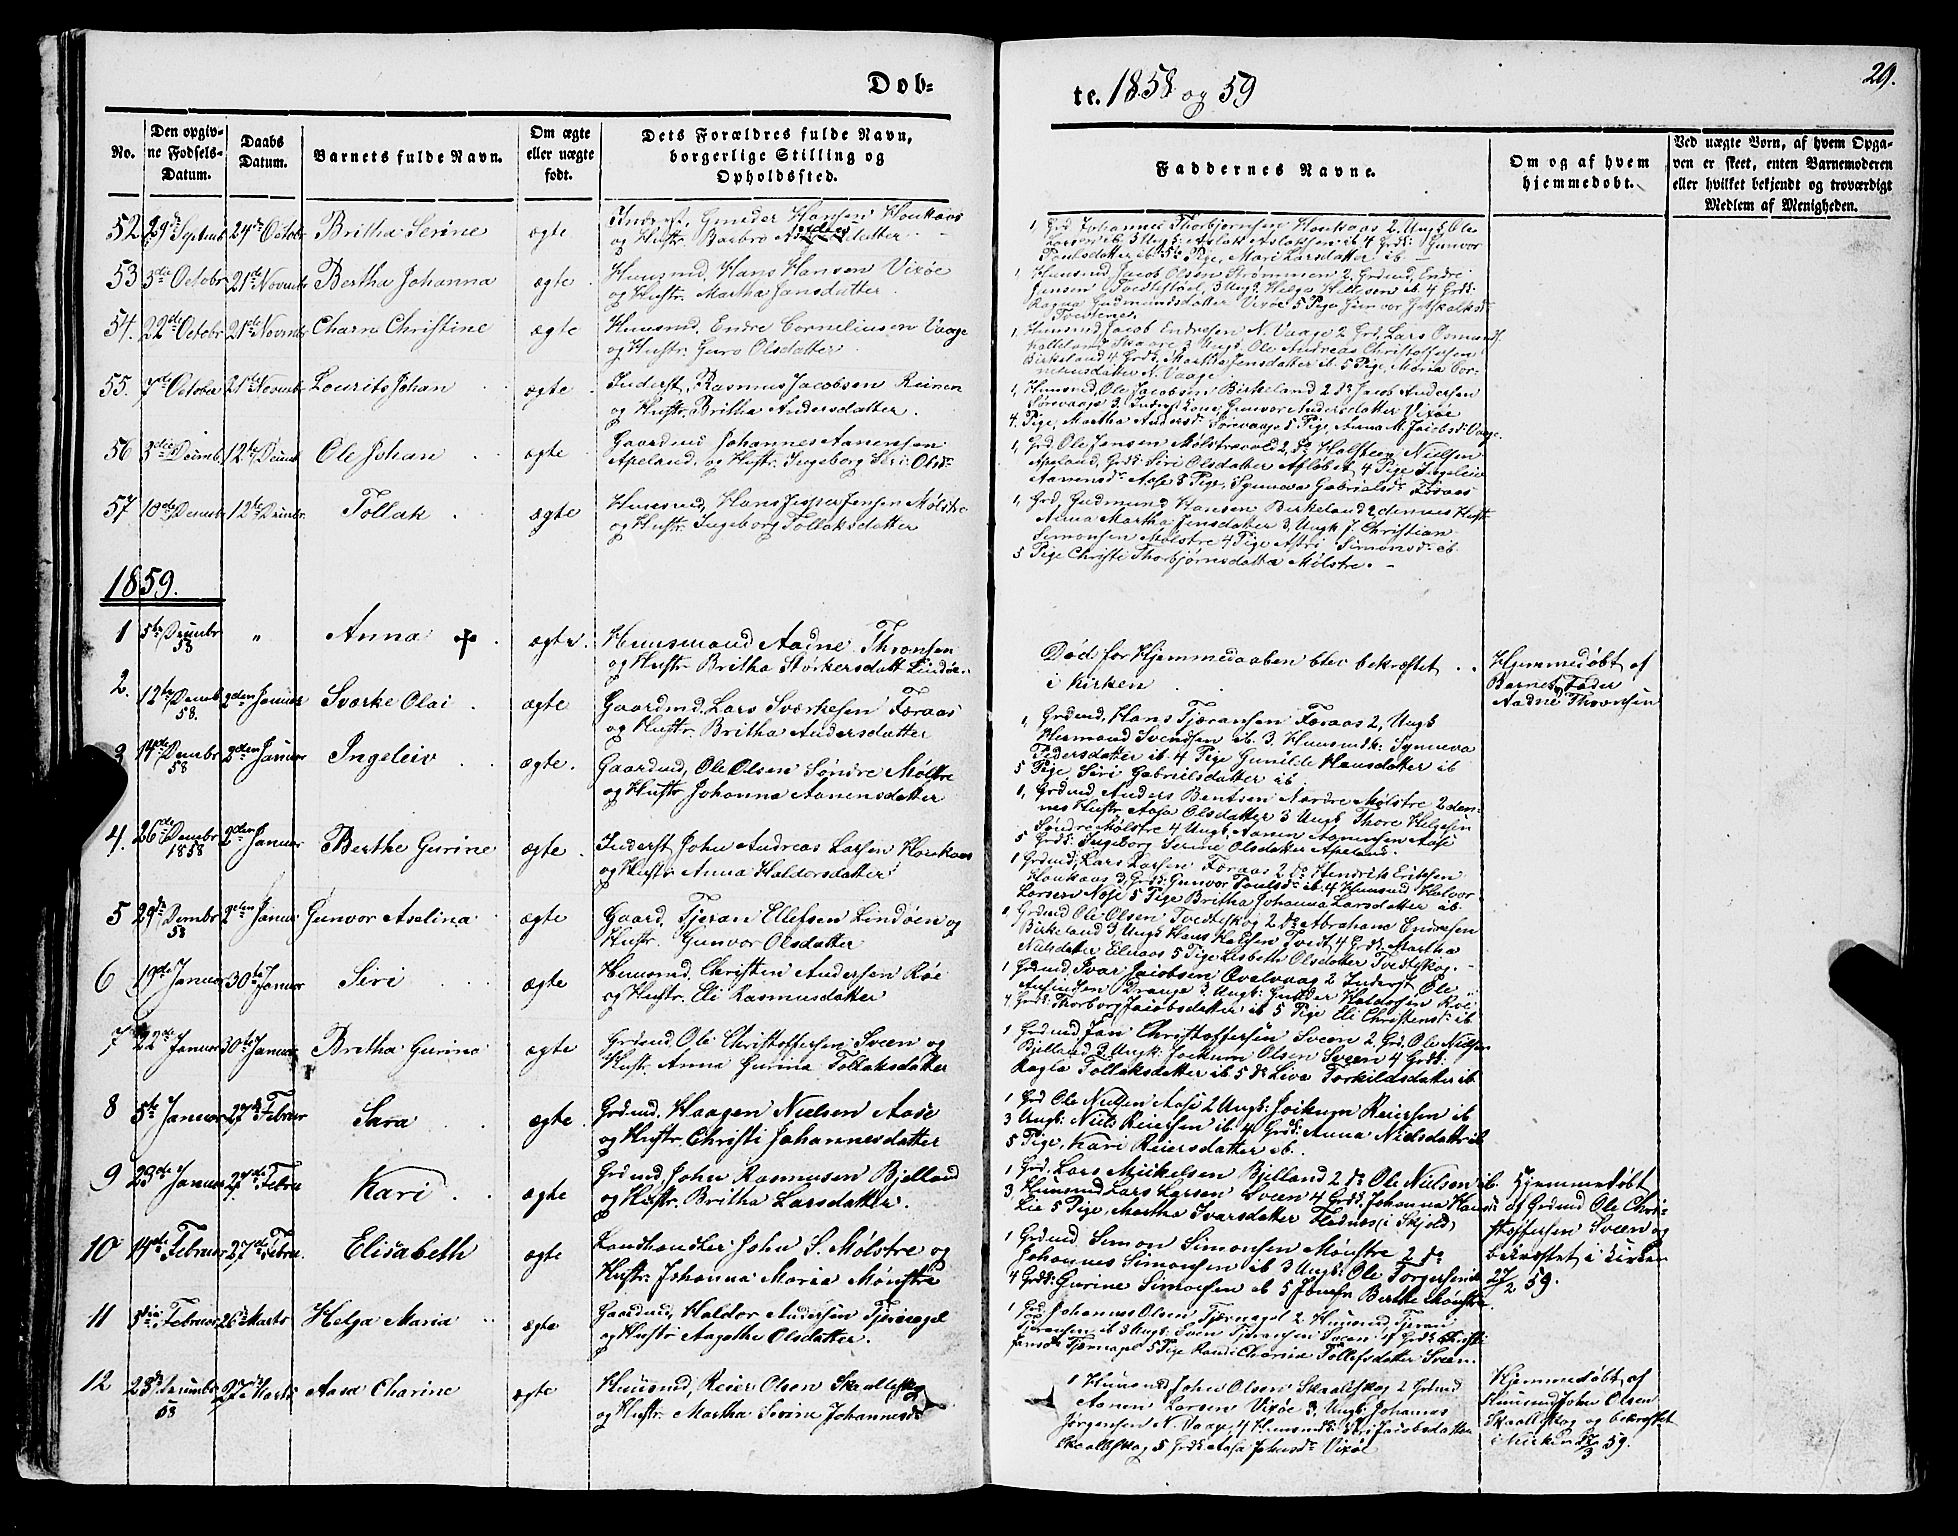 Døb=
te. 1858 og 59
29.
No.
Den opgiv-
ne Fødsels-
Datum.
Daabs
Datum.
Barnets fulde Navn.
Om ægte
eller uægte
født.
Dets Forældres fulde Navn,
borgerlige Stilling og
Opholdssted.
Faddernes Navne.
Om og af hvem
hjemmedøbt.
Ved uægte Born, af hvem Opga-
ven er skeet, enten Barnemoderen
eller hvilket bekjendt og troværdigt
Medlem af Menigheden.
52 29de Septemb 24de Octob Britha Serine ægte Inderst, Gunder Hansen Houkaas
og Hustr. Barbro datter
1, Grd Johannes Thorbjørnsen Houkaas 2, Ungk Ole
Larsen ib 3 Ungk Aslak Aslaksen ib 4 Grdk Gunvor
Poulsdatter ib 5te Pige, Mari Larsdatter ib
53 3die Octobr 21de Novembr Bertha Johanna ægte Huusmd, Hans Hansen Vixøe
og Hustr. Martha Jansdatter
1, Huusmd, Jacob Olsen Strømmen 2, Grdmd, Endre
Jensen 3 Ungk. Helge Helgesen ib 4 Grdk:
Ragna Gudmundsdatter Vixøe 5 Pige Gunvor
54. 22de Octobr 21de Novmbr Charn Christine ægte Huusmd, Endre Corneliusen Vaage
og Hustr. Guro Olsdatter
1, Huusmd, Jacob Endresen N. Vaage 2 Grd, Lars
Skaage 3 Ungk, Ole Andreas Christoffersen
Birkeland 4 Grdk, Martha Jensdatter ib. 5 Pige, Maria Cor-
neliusdatter N. Vaage
55. 7de October 21de Novmbr Lourits Johan ægte Inderst, Rasmus Jacobsen Reinen
og Hustr. Britha Andersdatter.
1, Huusmd, Ole Jacobsen Birkeland 2 do Jacob Andersen
Sørevaage 3, Inderst Kone, Gunvor Andersdatter Vixøe
4. Pige, Martha Andersd. Sørevaage 5 Pige, Anna M. Jacobsd: Vaage
56 3die Decmb 12te Decmb Ole Johan ægte Gaardmd Johannes Aanensen
Apeland, og Hustr, Ingeborg Siri: Olsd:
1, Grd. Ole Jensen Mølstrevold 2, do Halfsten Nielsen
Apeland, Grdk. Siri Olsdatter 4 Pige Ingeleiv
Aanensdr Aase 5 Pige, Synneva Gabrielsdr Føraas
57 10de Decmbr 12te Decmbr. Tollak ægte Huusmd, Hans Jesper Jensen Mølstre
og Hustr. Ingeborg Tollaksdatter
1, Grd, Gudmund Hansen Birkeland 2, dennes Hustr
Anna Martha Jensdatter 3, Ungk J. Christian
Simonsen Mølstre 4 Pige Astri Simonsdr ib.
5 Pige Christi Thorbjørnsdatter Mølstre.
1859.
1 5te Decmbr " Anna ✝ ægte. Huusmand Aadne Thronsen
58 og Hustr. Britha Størkersdatt Lindøen
Død før Hjemmedaaben blev bekræftet
i Kirken
Hjemmedøbt af
Barnets Fader
Aadne Thronsen
2. 12te Decmb 2den Januar Sværke Olai ægte Gaardmd, Lars Sværkesen Føraas
58. og Hustr: Britha Andersdatter
1, Grdmd, Hans Tjæransen Føraas 2, Ungk
Hermand Svendsen ib. 3. Huusmdk: Synneva
Pedersdatter ib 4 Pige Gunilde Hansdatter ib
5 Pige, Siri Gabrielsdatter ib
3 14de Decmbr 2den Januar Ingeleiv ægte. Gaardmd, Ole Olsen Søndre Mølstre
58 og Hustr Johanna Aanensdatter
1, Grdmd, Anders Bentsen Nordre Mølstre 2 den-
nes Hustr Aasa Olsdatter 3 Ungk Thore Helgesen
Søndre Mølstre 4 Ungk, Aanen Aanensen Aase
5 Grdk: Ingeborg Serine Olsdatter Apeland
4. 26de Decmbr 2den Januar Berthe Gurine ægte Inderst John Andreas Larsen Houkaas
1858 og Hustr Anna Haldorsdatter
1 Grdmd, Lars Larsen Føraas 2 do Hendrik Eriksen
Houkaas 3, Grdk: Gunvor Poulsd: ib. 4 Huusmd Halvor
Larsen Nose 5 Pige Britha Johanna Larsdatter ib
5 29de Decmbr 2den Januar Gunvor Aselina ægte Gaard, Tjeran Ellefsen Lindøen og
58 Hustr. Gunvor Olsdatter
1 Grdmd Ole Olsen Tvedteskog 2 do Abraham Endresen
Birkeland 3, Ungk Hans Halfsen Tvedt 4 Grdk. Martha
Nilsdatter Eilevaas 5 Pige Lisbeth Olsdatter Tvedteskog
6 19de Januar 30te Januar Siri ægte Huusmd, Christen Andersen Røe
og Hustr. Eli Rasmusdatter
1 Grdmd, Ivar Jacobsen Qvalvaag 2 Inderst Ole
Drange 3, Ungk: Gunder Haldorsen Røe
4 Grdk: Thorborg Jacobsdatter ib 5 Pige Eli Christensdr ib
7 22de Januar 30te Januar Bretha Gurina ægte Grdmd, Ole Christoffersen Sveen og
Hustr. Anna Gurina Tollaksdatter
1 Grdmd Jan Christoffersen Sveen 2 Grd. Ole Nielsen
Bjelland 3 Ungk: Joikum Olsen Sveen 4 Grdk:
Ragla Tollaksdatter ib 5 do Liva Torkildsdatter ib
8 5te Januar 27de Februar Sara ægte Grdmd, Haagen Nielsen Aase
og Hustr. Christi Johannesdatter
1 Grd Ole Nielsen Aase 2 Ungk: Joikum Reiersen ib
3 Ungk: Niels Reiersen ib. 4 Grdk: Anna Nielsdatter ib
5 Pige, Kari Reiersdatter ib
9 23de Januar 27de Febru Kari ægte Grdmd, John Rasmusen Bjelland
og Hustr. Britha Larsdatter.
1 Grd. Lars Mikkelsen Bjelland 2 do Ole Nielsen ib.
3 Huusmd Lars Larsen Sveen 4 Grdk. Johanna Hans
Lie 5 Pige, Martha Ivarsdatter Fladnes (i Skjold)
Hjemmedøbt
af Grdmd Ole Chri-
stoffersen Sveen og
bekræftet i Kirken
27/2 59.
10 14de Februar 27de Februar. Elisabeth ægte Landhandler John S. Mølstre og
Hustr. Johanna Maria Mønstre
1 Grdmd. Simon Simonsen Mønstre 2 do
Johannes Simonsen ib 3 Ungk: Ole Torgersen ib
4 Grdk: Gurine Simonsen ib 5 Jomfr Berthe Mønstre
11 5te Februar 26de Marts Helga Maria ægte Gaardmd, Haldor Andersen Tjernagel
og Hustr Aagathe Olsdatter.
1 Grd Johannes Olsen Tjernagel 2 Huusmd, Tjeran
Tjeransen ib 3 Ungk: Sven Tjeransen Sveen 4 Grdk Christi
Jansdr Tjernagel 5 Pige Randi Charine Tollefsdatter Sveen
12 23de Decembr 27de Marts Aasa Charine ægte Huusmd, Reier Olsen Skaalleskog
58 og Hustr. Martha Sevine Johannesdr
1 Huusmd, John Olsen Skaalleskog 2 Grdmd
Aanen Larsen Vixøe 3, Ungk: Johannes
Jørgensen N. Vaage 4 Huusmdk: Siri Jacobsdatter
Skaalleskog 5 Grdk: Aasa Johnsdr Vixøe
Hjemmedøbt af
Huusmd John Olsen
Skaalleskog og bekræftet
i Kirken 27/3 59.